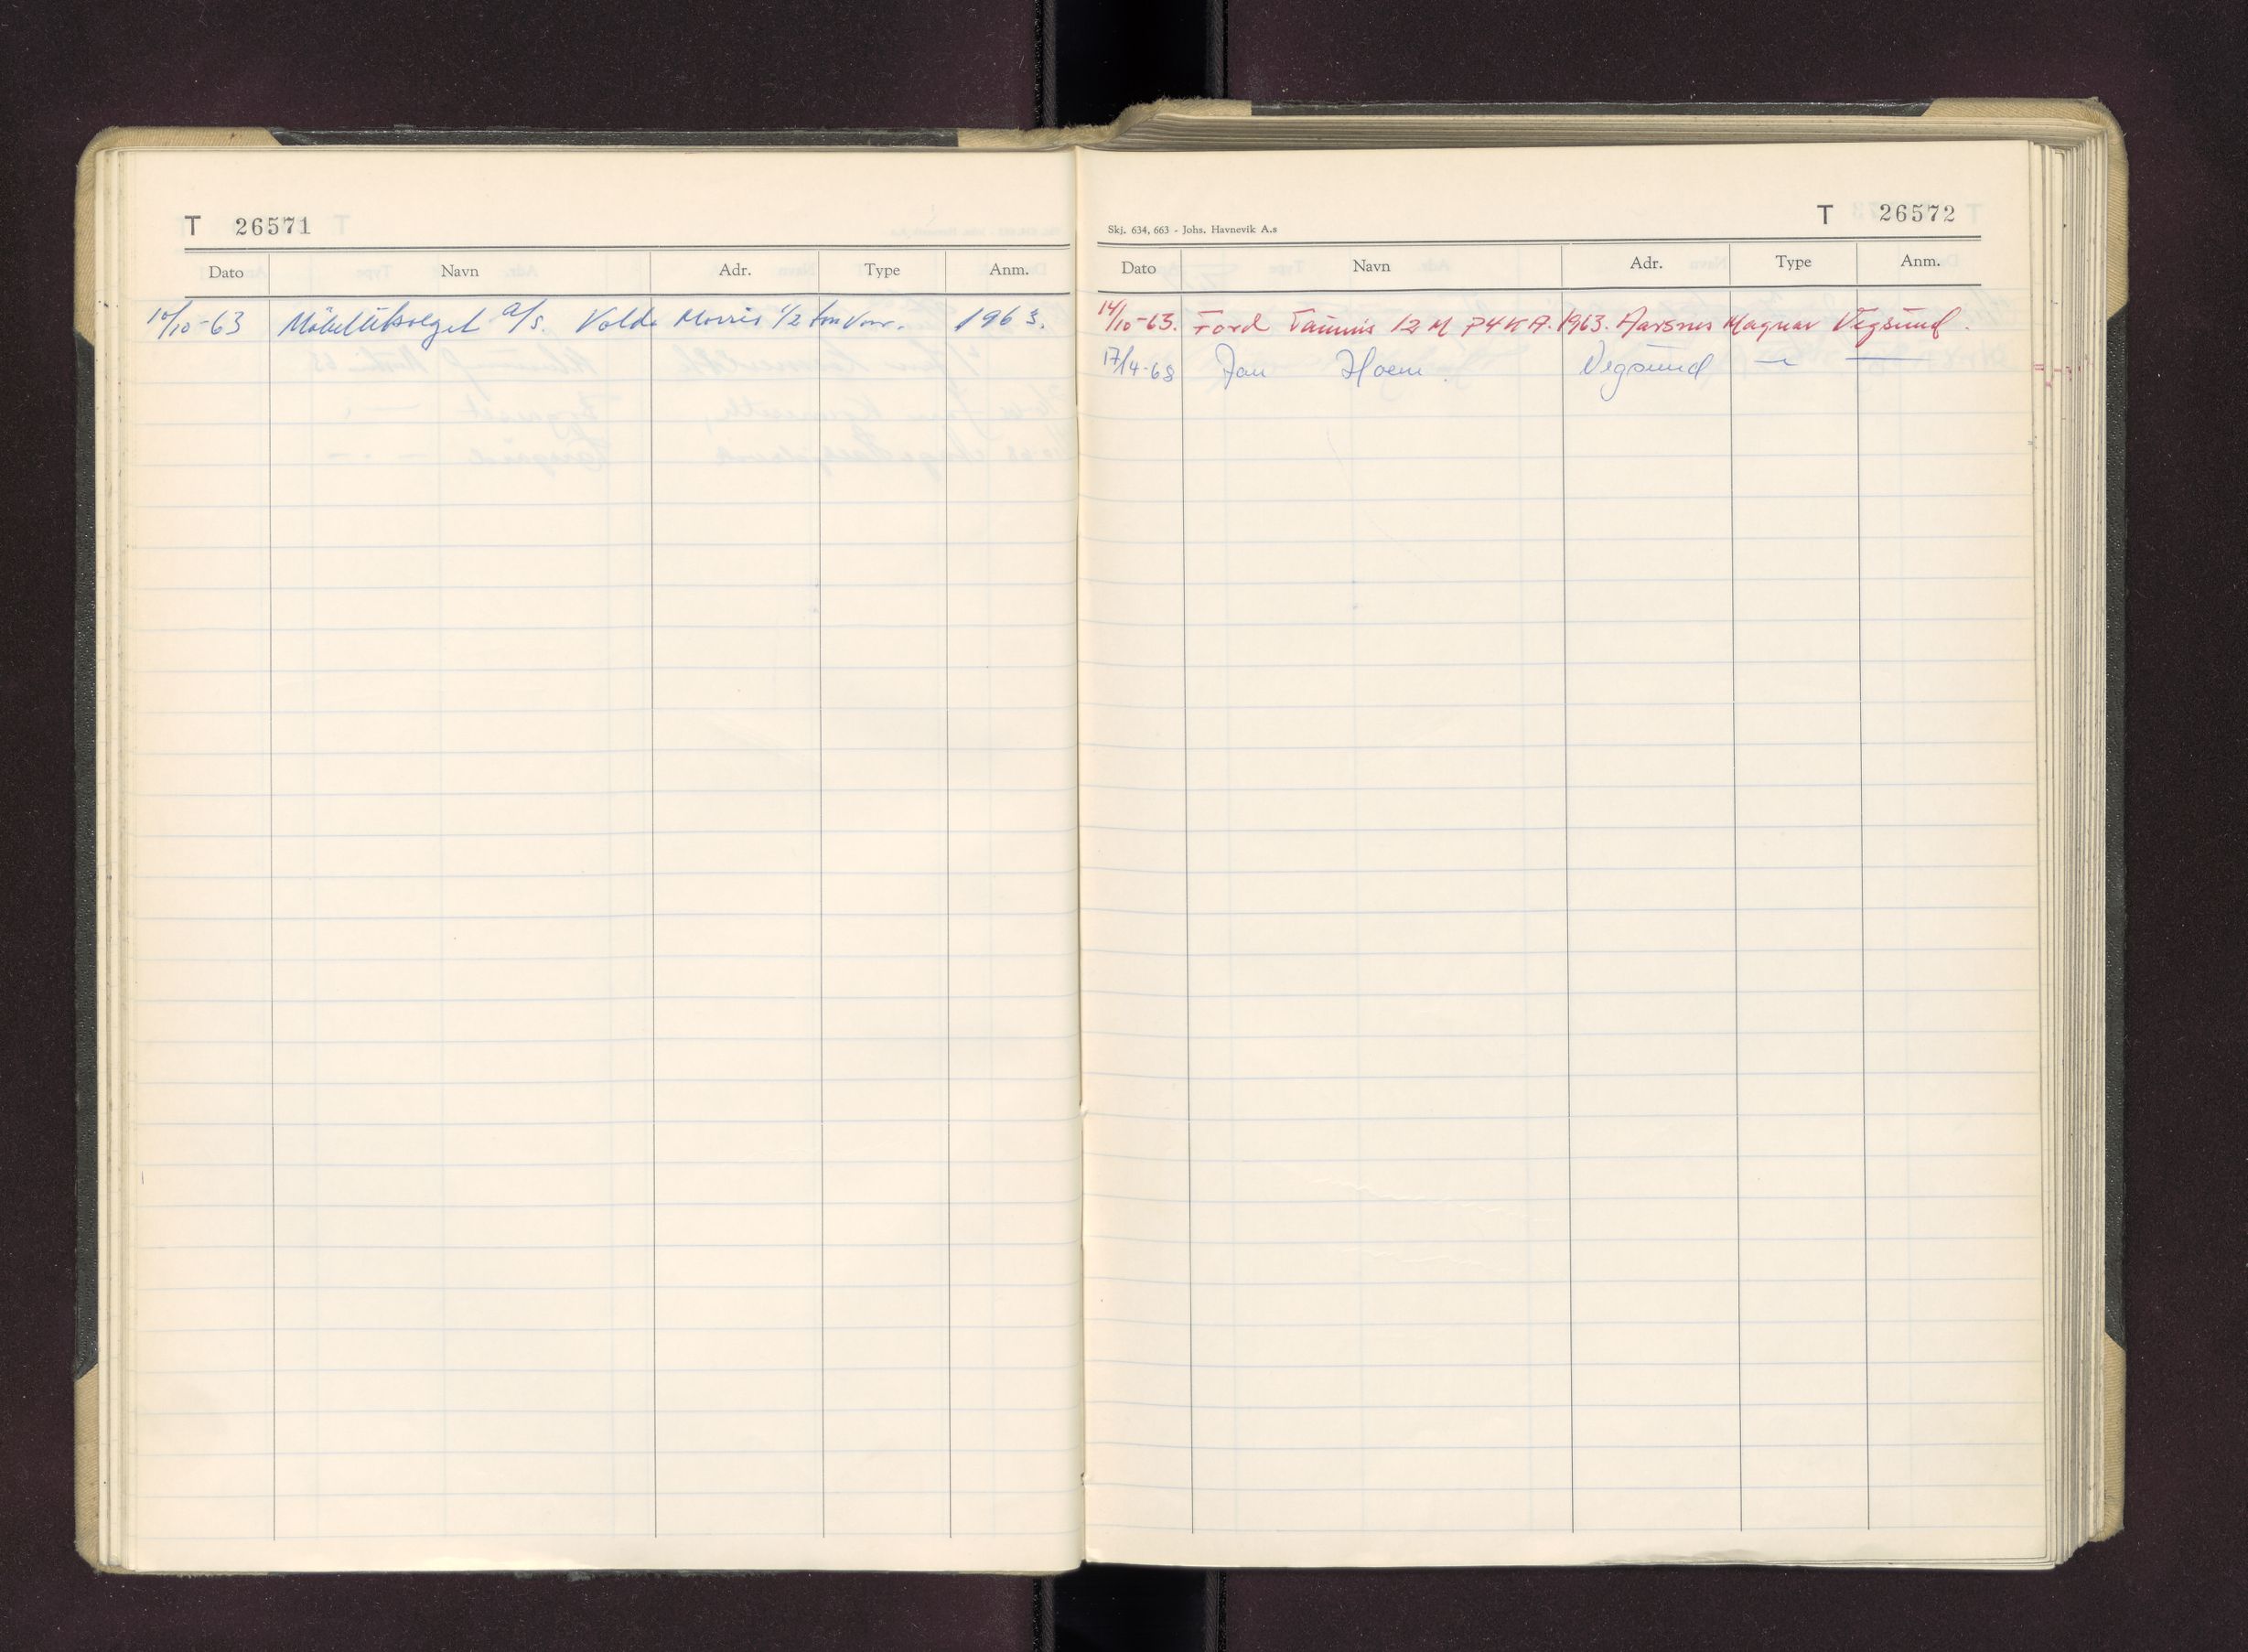 T 26571
Dato Navn Adr. Type Anm.
10/10-63 Möbelutsalget a/s. Volda Morris 1/2 ton Varr. 1963.
T 26572
Skj. 634, 663 - Johs. Havnevik A.s
Dato Navn Adr. Type Anm.
14/10-63. Ford Taunus 12 M P4 KA. 1963. Aarsnes Magnar Vegsund.
17/4-68 Jan Hoem. Vegsund — —